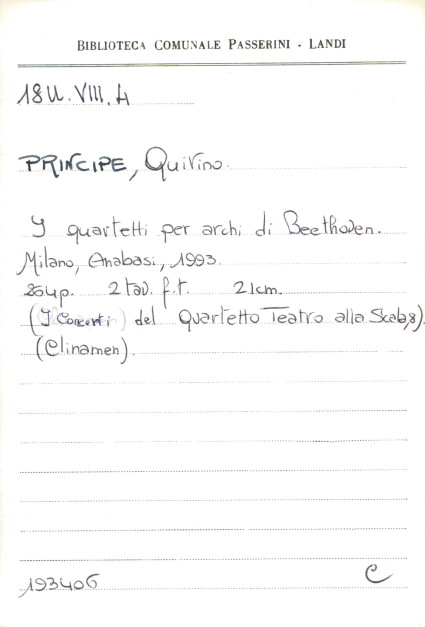 BIBLIOTECA COMUNALE PASSERINI - LANDI
18U.VIII.4
PRINCIPE, Quirino.
I quartetti per archi di Beethoven.
Milano, Anabasi, 1993.
204p. 2 tav. f.t. 21cm.
(I Concerti del Quartetto Teatro alla Scala,8).
(Clinamen).
193406
C